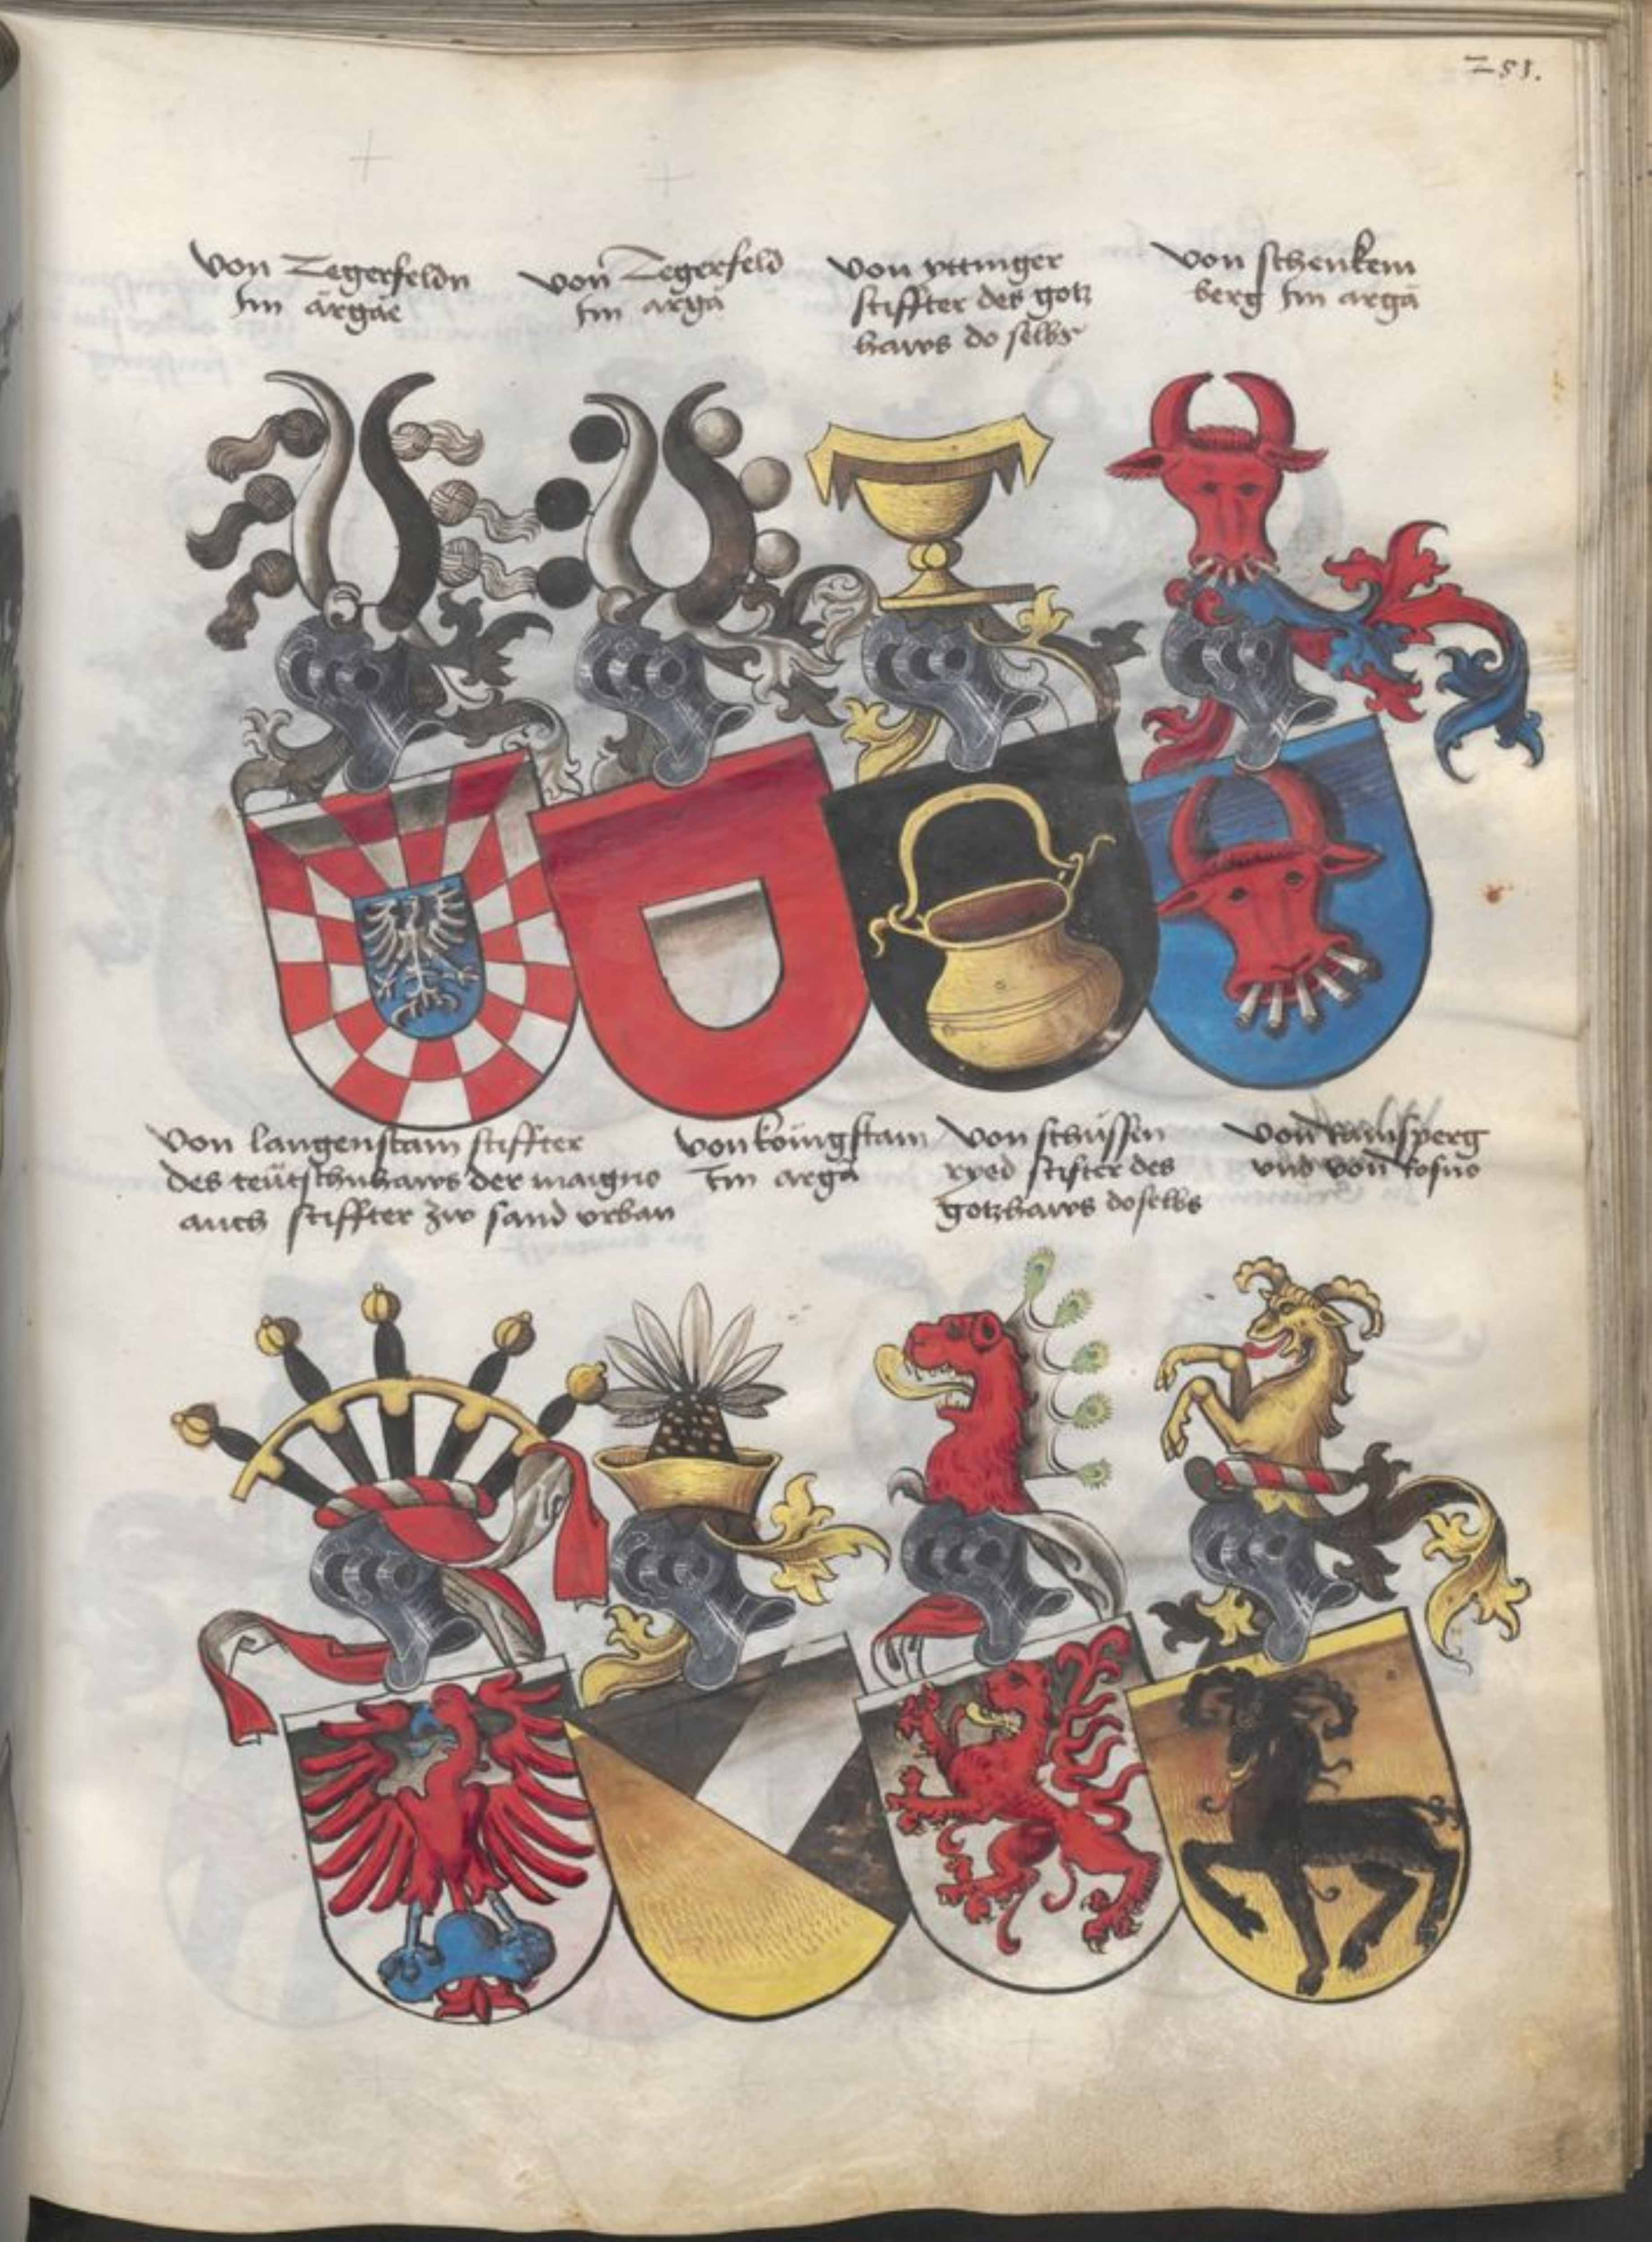 251.
von Tegerfeldn
Im ärgäe
von Tegerfeld
Im argä
von yttinger
stiffter des gotz
haws do selbs
von schenkem
berg Im argä
von langenstain stiffter
des teütschnhaws der maigno
auch stiffter zw sand vrban
von köingstain
Im argä
von schüssen
ryed stifter des
gotzhaws doselbs
von Ramsperg
vnd von